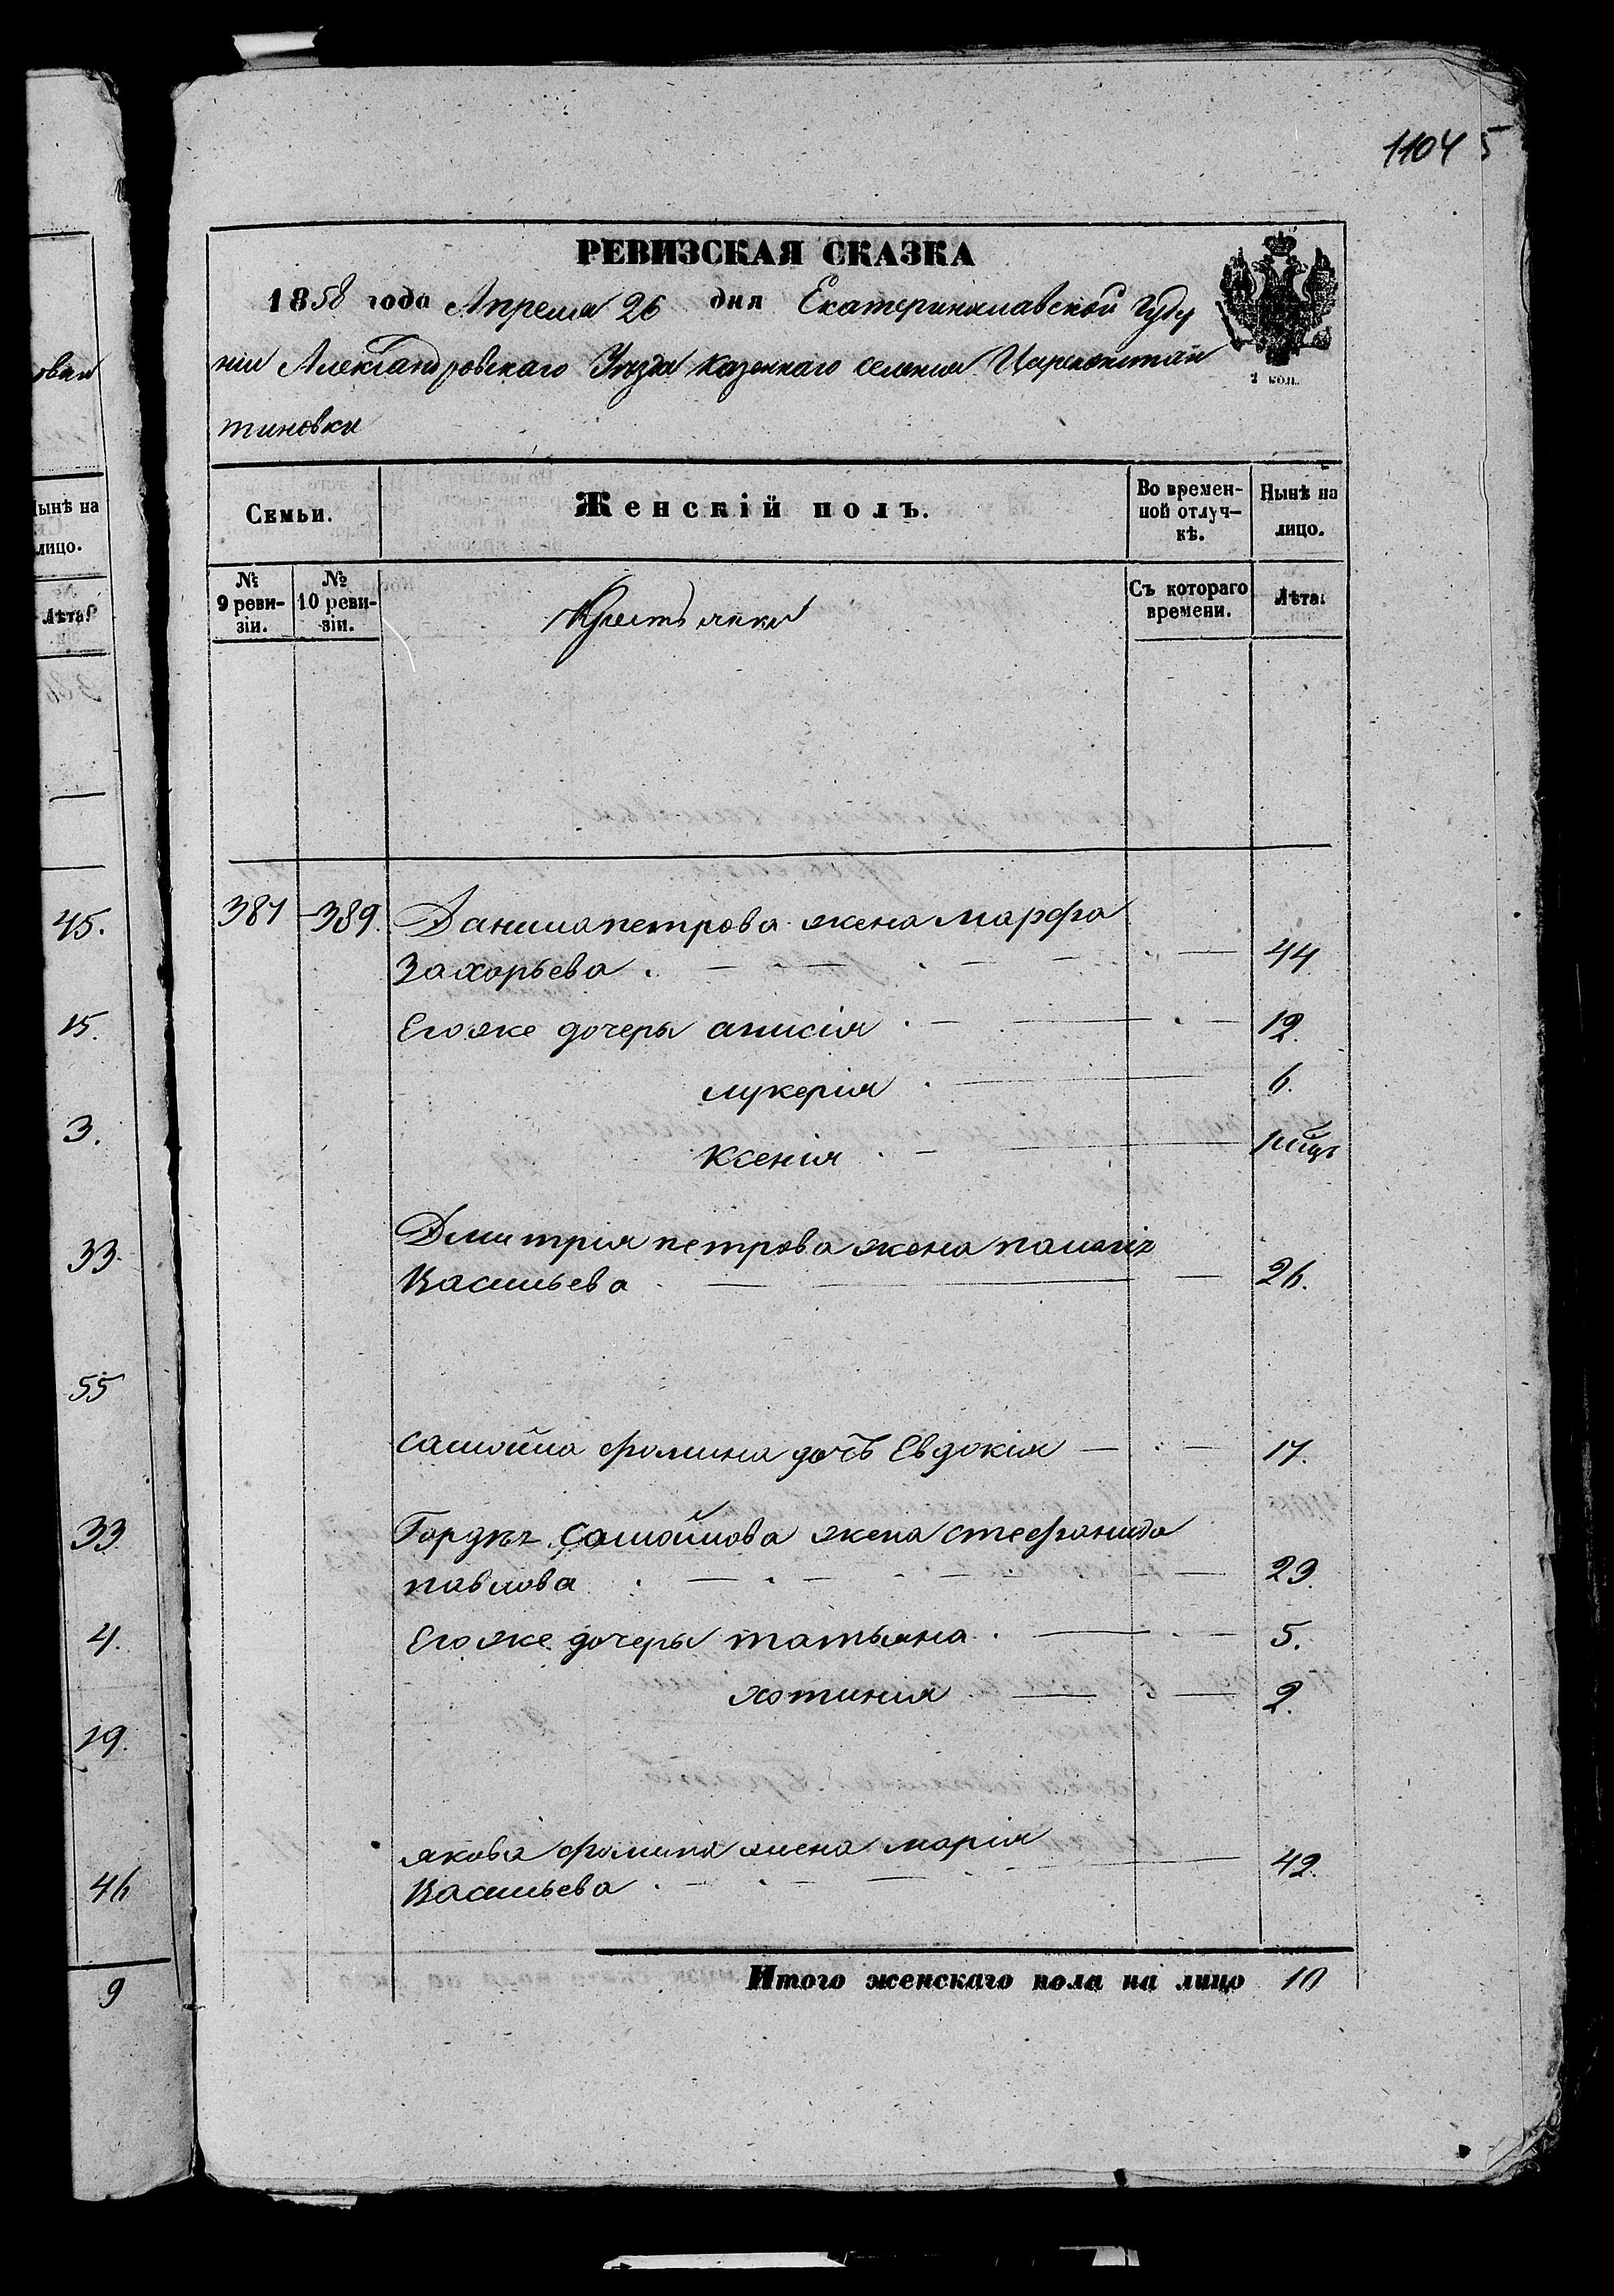 1104 5
РЕВИЗСКАЯ СКАЗКА
1858 года Апреля 26 дня Екатеринославской Губер
нии Александровскаго Уезда казеннаго селения Цареконстан
тиновки
2 коп.
Семьи.
Женскій полъ.
Во времен-
ной отлуч-
кѣ.
Нынѣ на
лицо.
№
9 реви-
зіи.
№
10 реви-
зіи.
Крестьянки
Съ котораго
времени.
Лѣта.
381 389. Данила петрова жена марфа
Захорьева 44
Его же дочеры анисія 12.
лукерія 6.
Ксенія
Дмитрія петрова жена
Васильева 26.
самойла фомина дочь Евдокія 17.
Гордея самойлова жена стефанида
павлова 23.
Его же дочеры татьяна 5.
хотинія 2.
якова фомина жена марія
Васильева 42.
Итого женскаго пола на лицо 10
овки
Нынѣ на
лицо.
Лѣта.
45.
15.
3.
33.
55
33
4.
19.
46
9